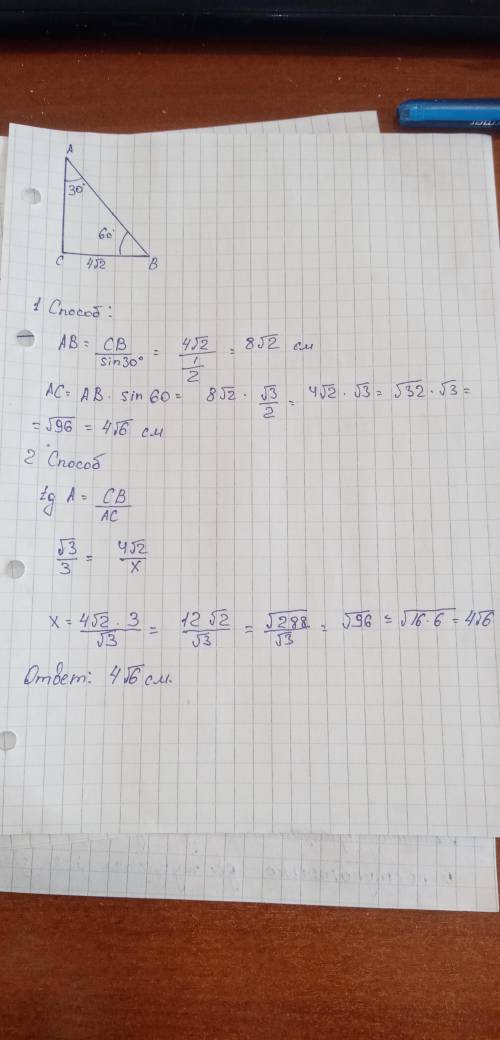 A
30°
60°
C 4√2 B
1 Способ:
AB = CB/sin30° = 4√2/(1/2) = 8√2 см
AC = AB · sin 60 = 8√2 · √3/2 = 4√2 · √3 = √32 · √3 =
= √96 = 4√6 см
2 Способ
tg A = CB/AC
√3/3 = 4√2/x
x = 4√2 · 3/√3 = 12√2/√3 = √288/√3 = √96 = √16·6 = 4√6
Ответ: 4√6 см.